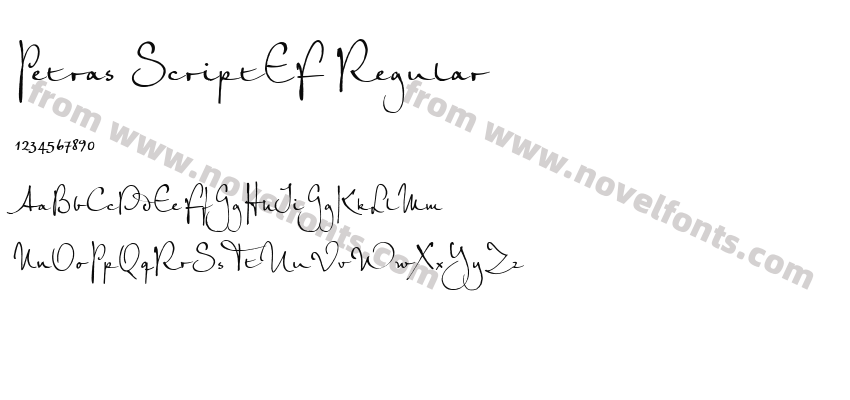 Petras ScriptEF Regular
1234567890
AaBbCcDdEeFfGgHhIiGgKkLlMm
NnOoPpQqRrSsTtUuVvWwXxYyZz
from www.novelfonts.com
from www.novelfonts.com